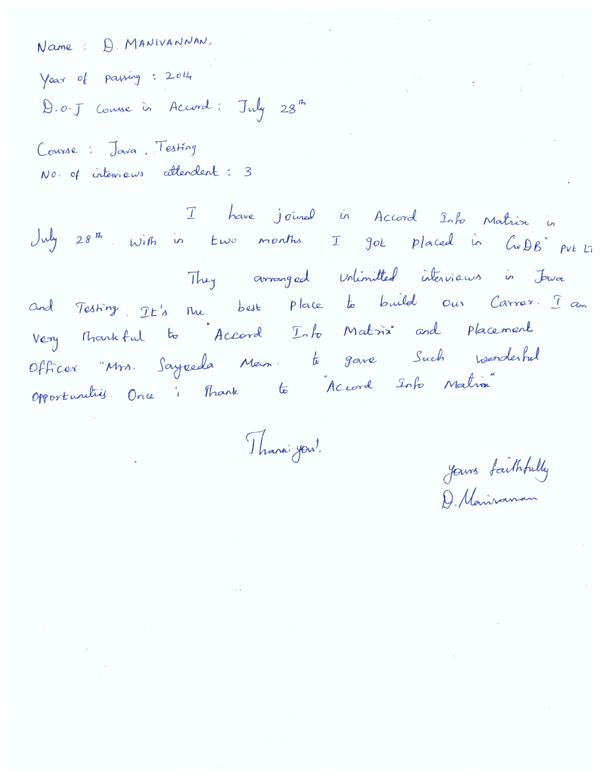 Name : D. MANIVANNAN.
Year of passing : 2014
D.O.J Course in Accord : July 28th
Course : Java, Testing
No. of interviews attendent : 3
I have joined in Accord Info Matrix in
July 28th. With in two months I got placed in "CreDB" Pvt Lt
They arranged Unlimitted interviews in Java
and Testing. It's the best place to build our Carrer. I am
very thankful to "Accord Info Matrix" and placement
officer "Mrs. Sayeeda Mam. to gave such wonderful
opportunities. Once i thank to "Accord Info Matrix"
Thank you!.
yours faithfully
D. Manivanan